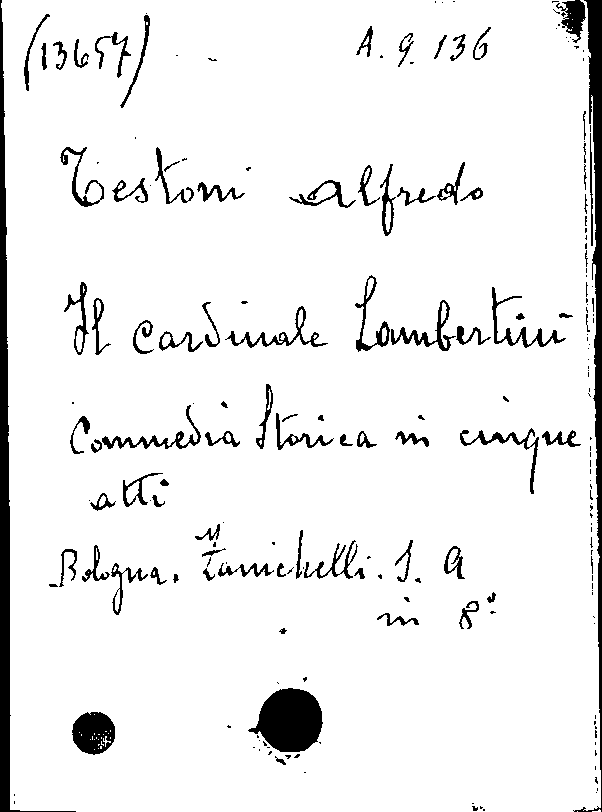 (13657)
A. 9. 136
Testoni Alfredo
Il cardinale Lambertini
Commedia Storica in cinque
atti
Bologna. Zanichelli. S. A
in 8°